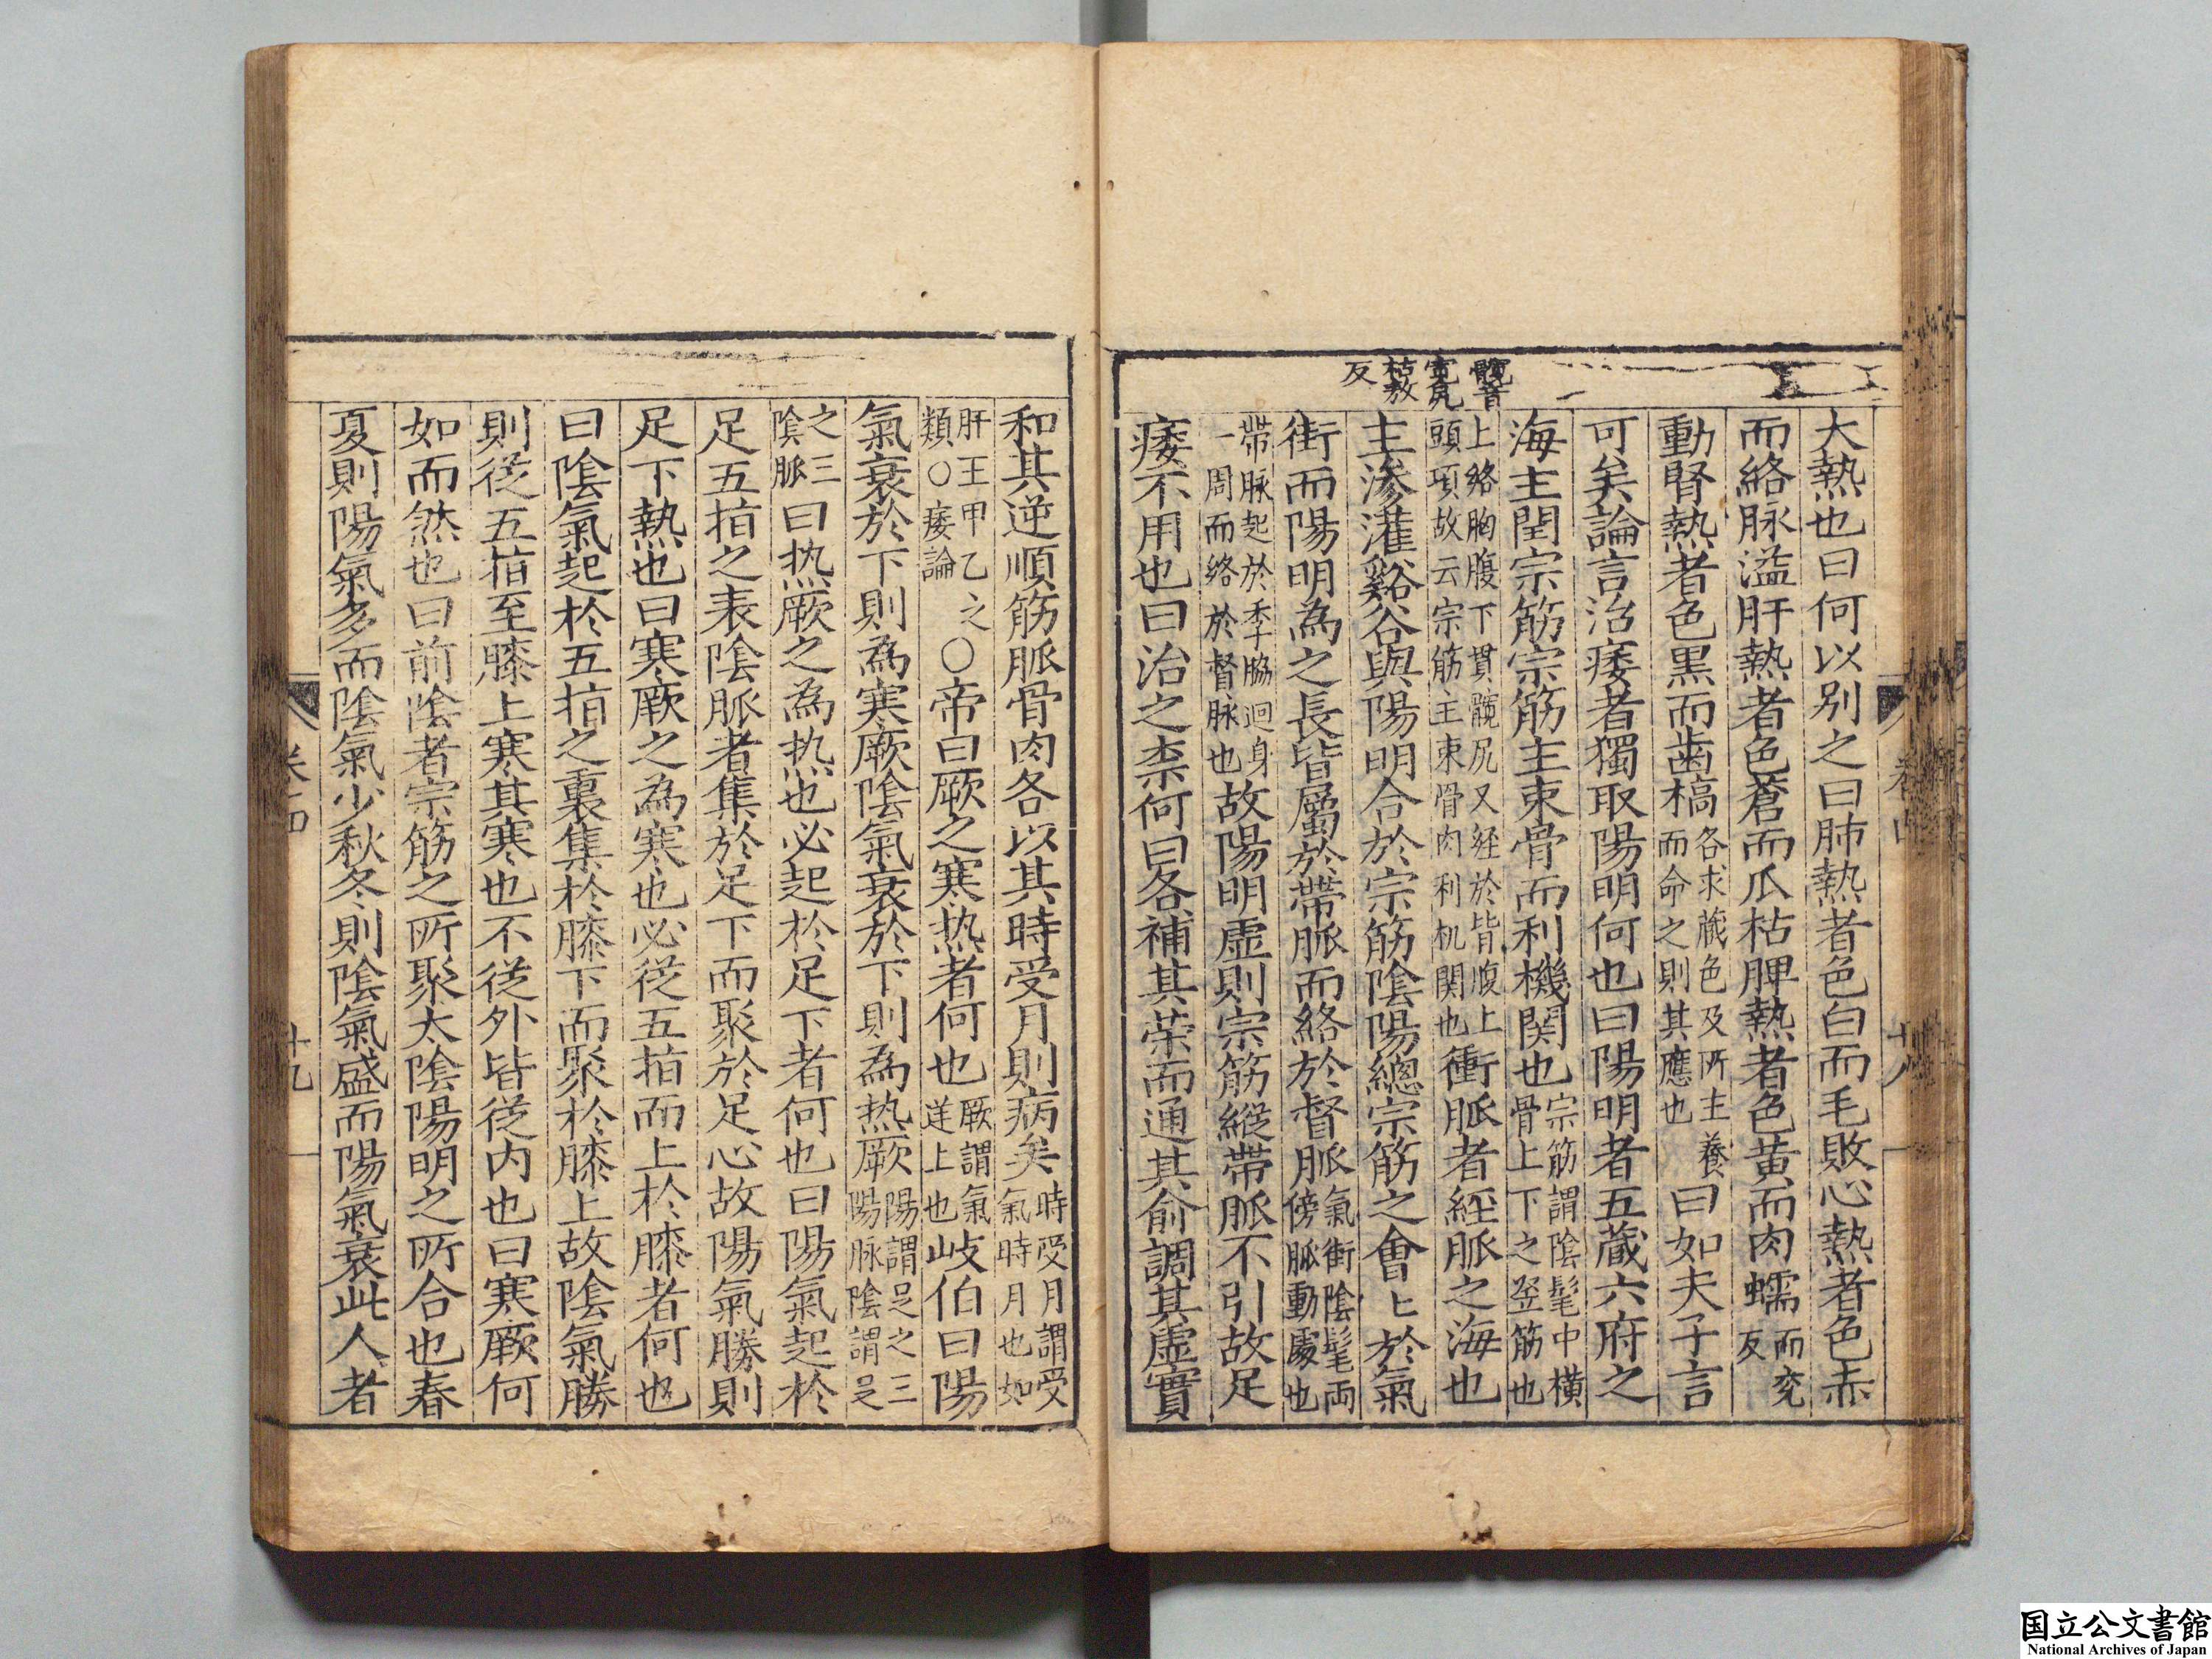 髖音
寛尻
枯敖
反
大熱也曰何以別之曰肺熱者色白而毛敗心熱者色赤
而絡脉溢肝熱者色蒼而爪枯脾熱者色黄而肉蠕而兖反
動腎熱者色黒而歯槁各求蔵色及所主養而命之則其應也曰如夫子言
可矣論言治痿者獨取陽明何也曰陽明者五蔵六府之
海主閏宗筋宗筋主束骨而利機関也宗筋謂陰髦中横骨上下之竖筋也
上絡胸腹下貫髖尻又経於背腹上頭項故云宗筋主束骨肉利机関也衝脈者経脈之海也
主滲灌谿谷與陽明合於宗筋陰陽總宗筋之會〻於氣
街而陽明為之長皆屬於帶脈而絡於督脈氣街陰髦両傍脈動處也
帶脉起於季脇迴身一周而絡於督脉也故陽明虚則宗筋縦帶脈不引故足
痿不用也曰治之柰何曰各補其荣而通其俞調其虚實
卷四
十八
和其逆順筋脈骨肉各以其時受月則病矣時受月謂受氣時月也如
肝王甲乙之類○痿論○帝曰厥之寒热者何也厥謂氣逆上也岐伯曰陽
氣衰於下則為寒厥陰氣衰於下則為热厥陽謂足之三陽脉陰謂足
之三陰脈曰热厥之為热也必起於足下者何也曰陽氣起於
足五指之表陰脈者集於足下而聚於足心故陽氣勝則
足下熱也曰寒厥之為寒也必従五指而上於膝者何也
曰陰氣起於五指之裏集於膝下而聚於膝上故陰氣勝
則従五指至膝上寒其寒也不従外皆従内也曰寒厥何
如而然也曰前陰者宗筋之所聚太陰陽明之所合也春
夏則陽氣多而陰氣少秋冬則陰氣盛而陽氣衰此人者
卷四
十九
国立公文書館
National Archives of Japan